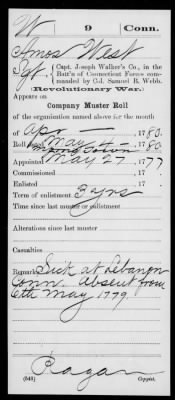 W 9 Conn.
Amos West
Sgt., Capt. Joseph Walker's Co., in the
Batt'n of Connecticut Forces com-
manded by Col. Samuel B. Webb.
(Revolutionary War.)
Appears on
Company Muster Roll
of the organization named above for the month
of Apr — , 1780.
Roll dated May 4 — , 1780.
Appointed May 27 , 1777
Commissioned , 17
Enlisted , 17
Term of enlistment 3 yrs
Time since last muster or enlistment
Alterations since last muster
Casualties
Remarks: Sick at Lebanon
Conn. Absent from
6th May 1779.
Ragan
(543) Copyist.